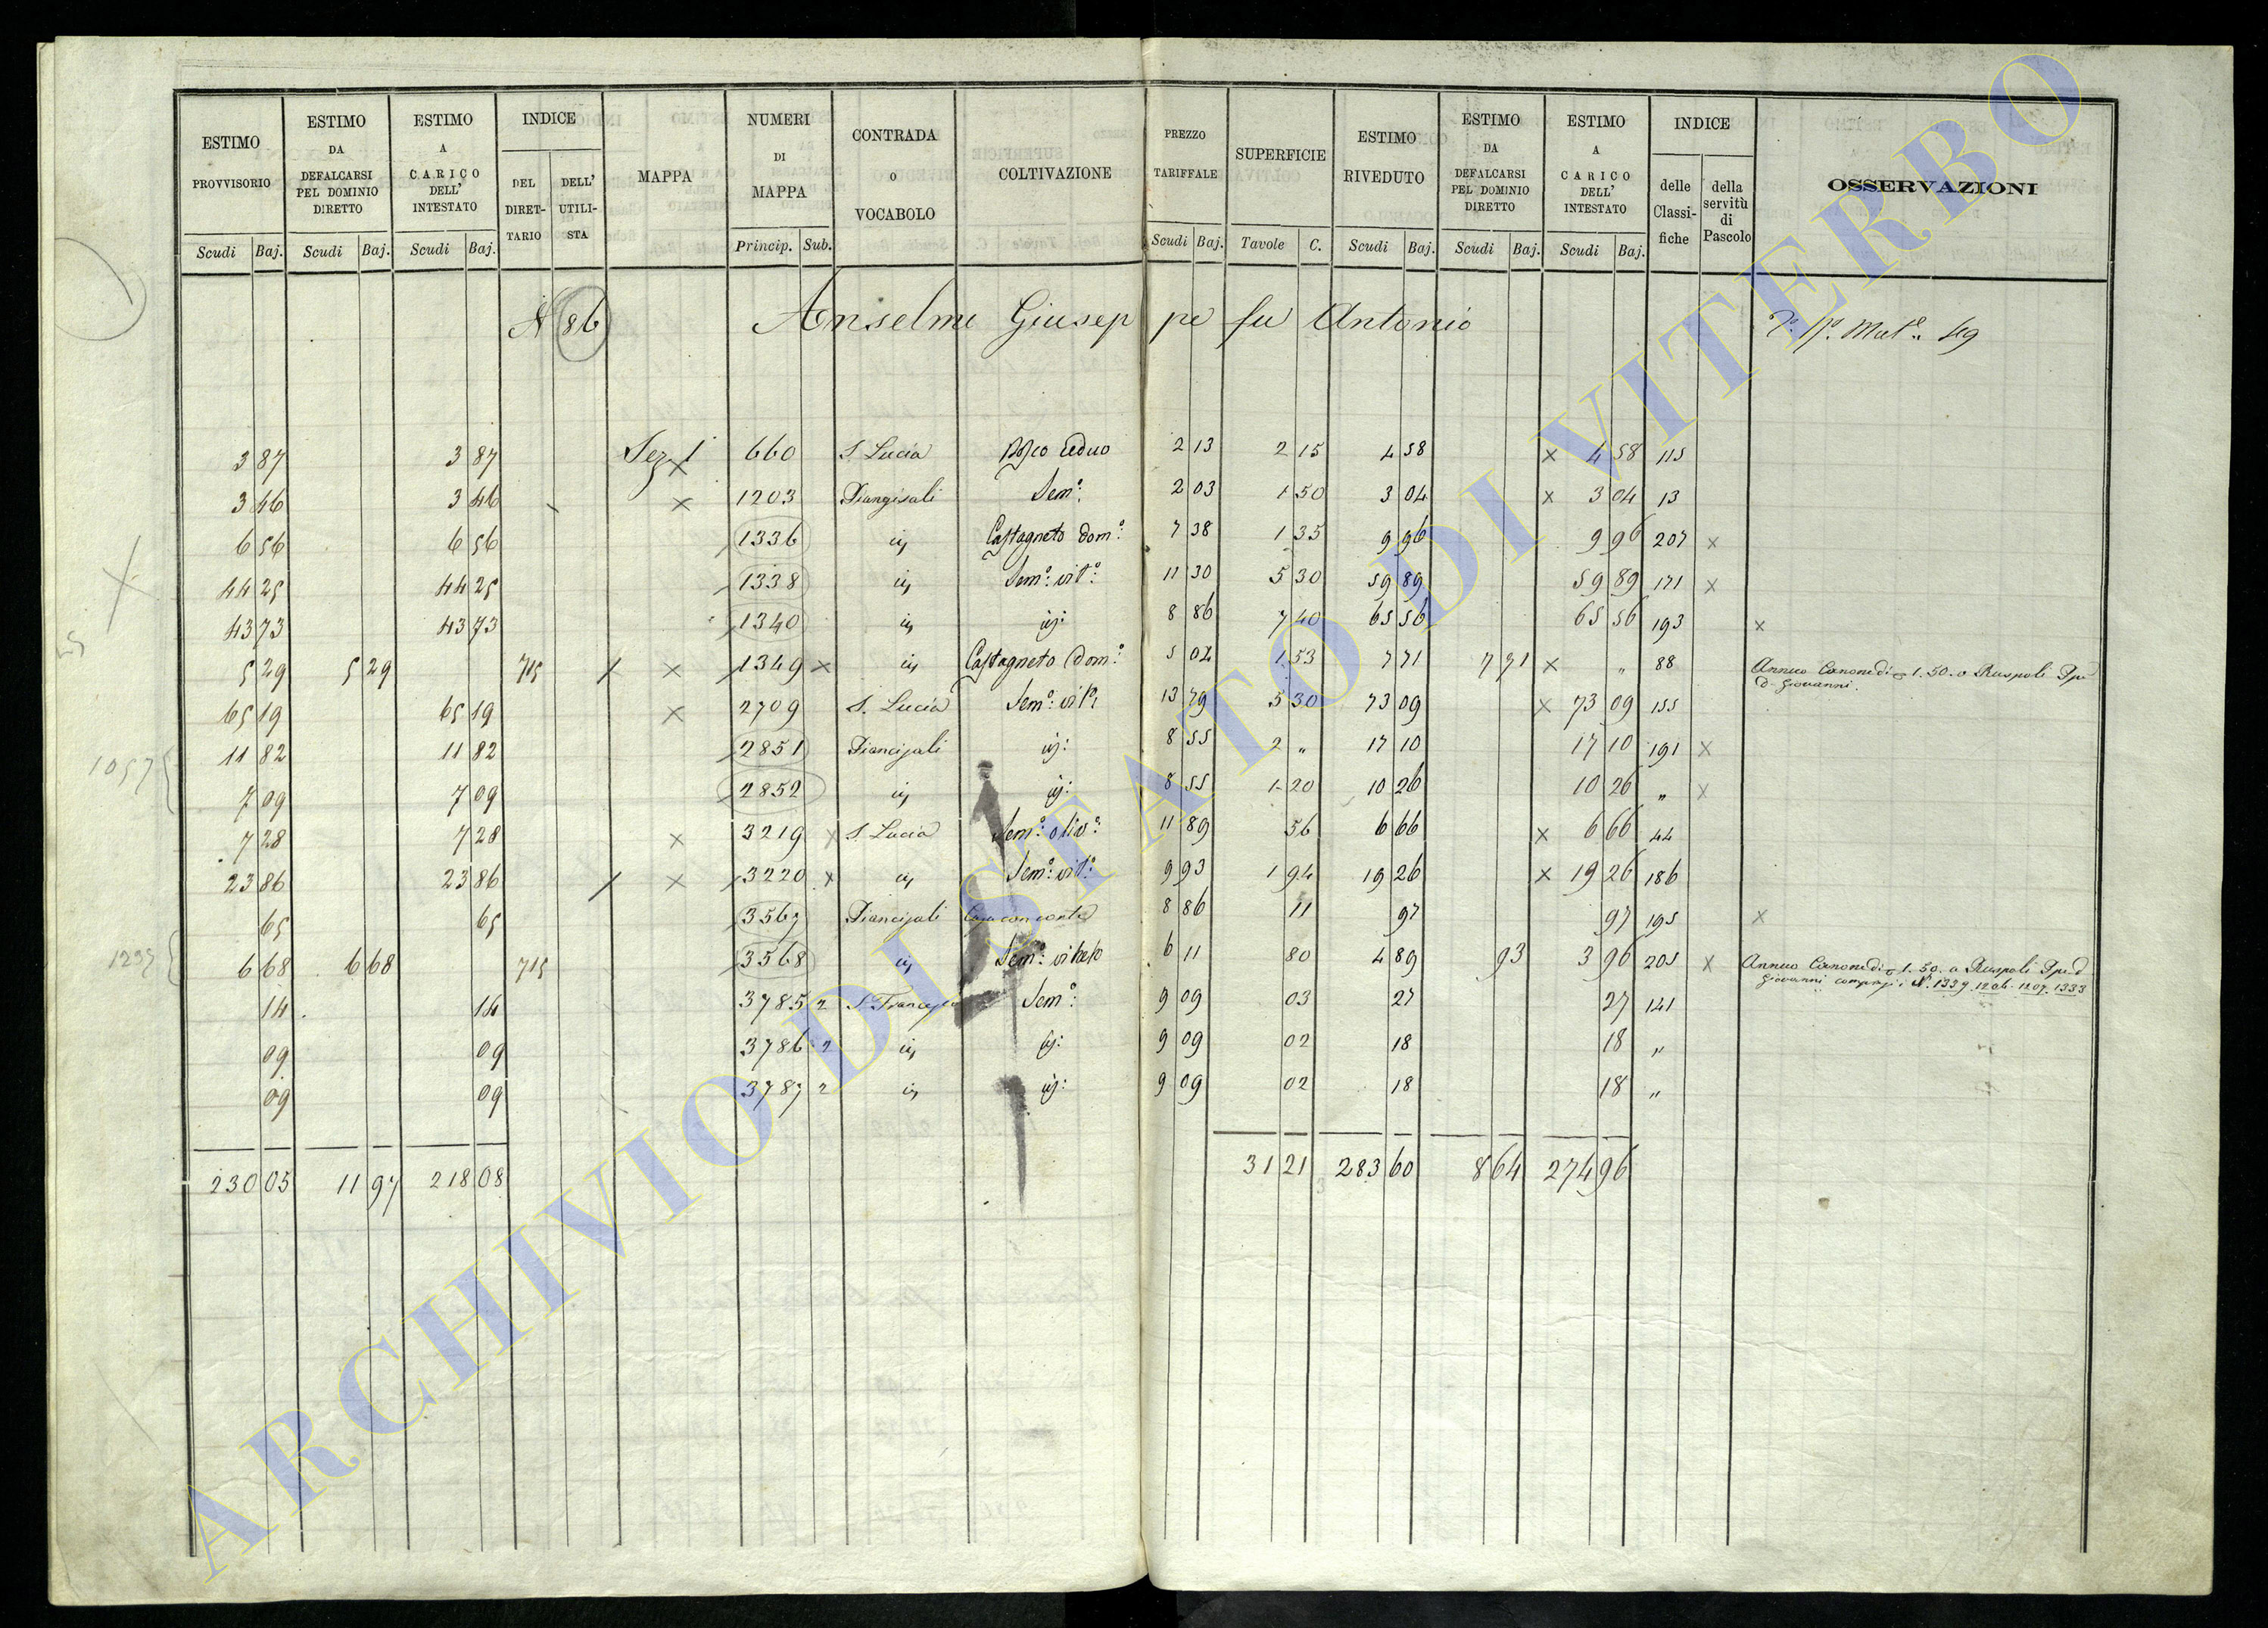 ESTIMO PROVVISORIO | ESTIMO DA DEFALCARSI PEL DOMINIO DIRETTO | ESTIMO A CARICO DELL' INTESTATO | INDICE DEL DIRETTARIO | DELL' UTILISTA | MAPPA | NUMERI DI MAPPA | CONTRADA O VOCABOLO | COLTIVAZIONE | PREZZO TARIFFALE | SUPERFICIE | ESTIMO RIVEDUTO | ESTIMO DA DEFALCARSI PEL DOMINIO DIRETTO | ESTIMO A CARICO DELL' INTESTATO | INDICE delle Classifiche | della servitù di Pascolo | OSSERVAZIONI
Scudi Baj. | Scudi Baj. | Scudi Baj. | Princip. Sub. | Scudi Baj. | Tavole C. | Scudi Baj. | Scudi Baj. | Scudi Baj.
N 86 Anselmi Giuseppe fu Antonio Mat.e 49
3 87 | 3 87 | Sez 1 x | 660 | S. Lucia | Bosco Ceduo | 2 13 | 2 15 | 4 58 | x 4 58 | 115
3 46 | 3 46 | x | 1203 | Piangisali | Sem.o | 2 03 | 1 50 | 3 04 | x 3 04 | 13
6 56 | 6 56 | 1336 | in | Castagneto Dom.o | 7 38 | 1 35 | 9 96 | 9 96 | 207 x
44 25 | 44 25 | 1338 | in | Sem.o vit.o | 11 30 | 5 30 | 59 89 | 59 89 | 171 x
43 73 | 43 73 | 1340 | in | in: | 8 86 | 7 40 | 65 56 | 65 56 | 193 | x
5 29 | 5 29 | 715 | / x | 1349 x | in | Castagneto Dom.o | 5 04 | 1 53 | 7 71 | 7 71 | x " | 88 | Annuo Canone di 1.50. a Ruspoli Ppe
D. Giovanni.
65 19 | 65 19 | x | 2709 | S. Lucia | Sem.o vit.o | 13 79 | 5 30 | 73 09 | x 73 09 | 155
1057 { 11 82 | 11 82 | 2851 | Piancisali | in: | 8 55 | 2 " | 17 10 | 17 10 | 191 x
7 09 | 7 09 | 2852 | in | in: | 8 55 | 1 20 | 10 26 | 10 26 | " x
7 28 | 7 28 | x | 3219 x | S. Lucia | Sem.o oliv.o | 11 89 | 56 | 6 66 | x 6 66 | 44
23 86 | 23 86 | / x | 3220 x | in | Sem.o vit.o | 9 93 | 1 94 | 19 26 | x 19 26 | 186
65 | 65 | 3567 | Piancisali | Casa con corte | 8 86 | 11 | 97 | 97 | 195 | x
1237 { 6 68 | 6 68 | 715 | 3568 | in | Sem.o vitato | 6 11 | 80 | 4 89 | 93 | 3 96 | 205 x | Annuo Canone di 1.50. a Ruspoli Ppe D.
Giovanni compresi i N. 1339. 1206. 1207. 1333
14 | 14 | 3785 2 | S. Francesco | Sem.o | 9 09 | 03 | 27 | 27 | 141
09 | 09 | 3786 2 | in | in: | 9 09 | 02 | 18 | 18 | "
09 | 09 | 3787 2 | in | in: | 9 09 | 02 | 18 | 18 | "
230 05 | 11 97 | 218 08 | 31 21 | 283 60 | 8 64 | 274 96
ARCHIVIO DI STATO DI VITERBO